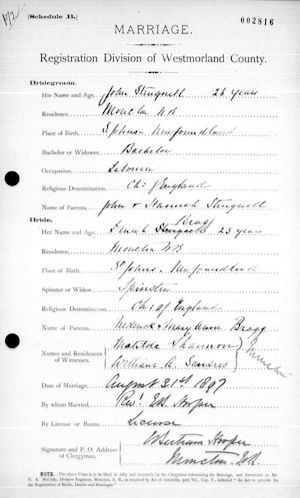 172
(Schedule B.)
002816
MARRIAGE.
Registration Division of Westmorland County.
Bridegroom.
His Name and Age, John 26 years
Residence, Moncton NB
Place of Birth, St Johns Newfoundland
Bachelor or Widower, Bachelor
Occupation, Labourer
Religious Denomination, Ch of England
Name of Parents, John & Hannah
Bride. Bragg
Her Name and Age, 23 years
Residence, Moncton NB
Place of Birth, St Johns Newfoundland
Spinster or Widow, Spinster
Religious Denomination, Ch. of England
Name of Parents, & Mary Ann Bragg
Names and Residences of Witnesses, Matilda Shannon
William A. Moncton
Date of Marriage, August 31st 1897
By whom Married, Revd. EB Hooper
By License or Banns, License
Signature and P. O. Address of Clergyman, E Bertram Hooper
Moncton, N.B.
NOTE.—The above Form is to be filled in duly and accurately by the Clergyman solemnizing the Marriage, and forwarded to Mr.
F. A. McCully, Division Registrar, Moncton, N. B., as required by
Registration of Births, Deaths and Marriages."